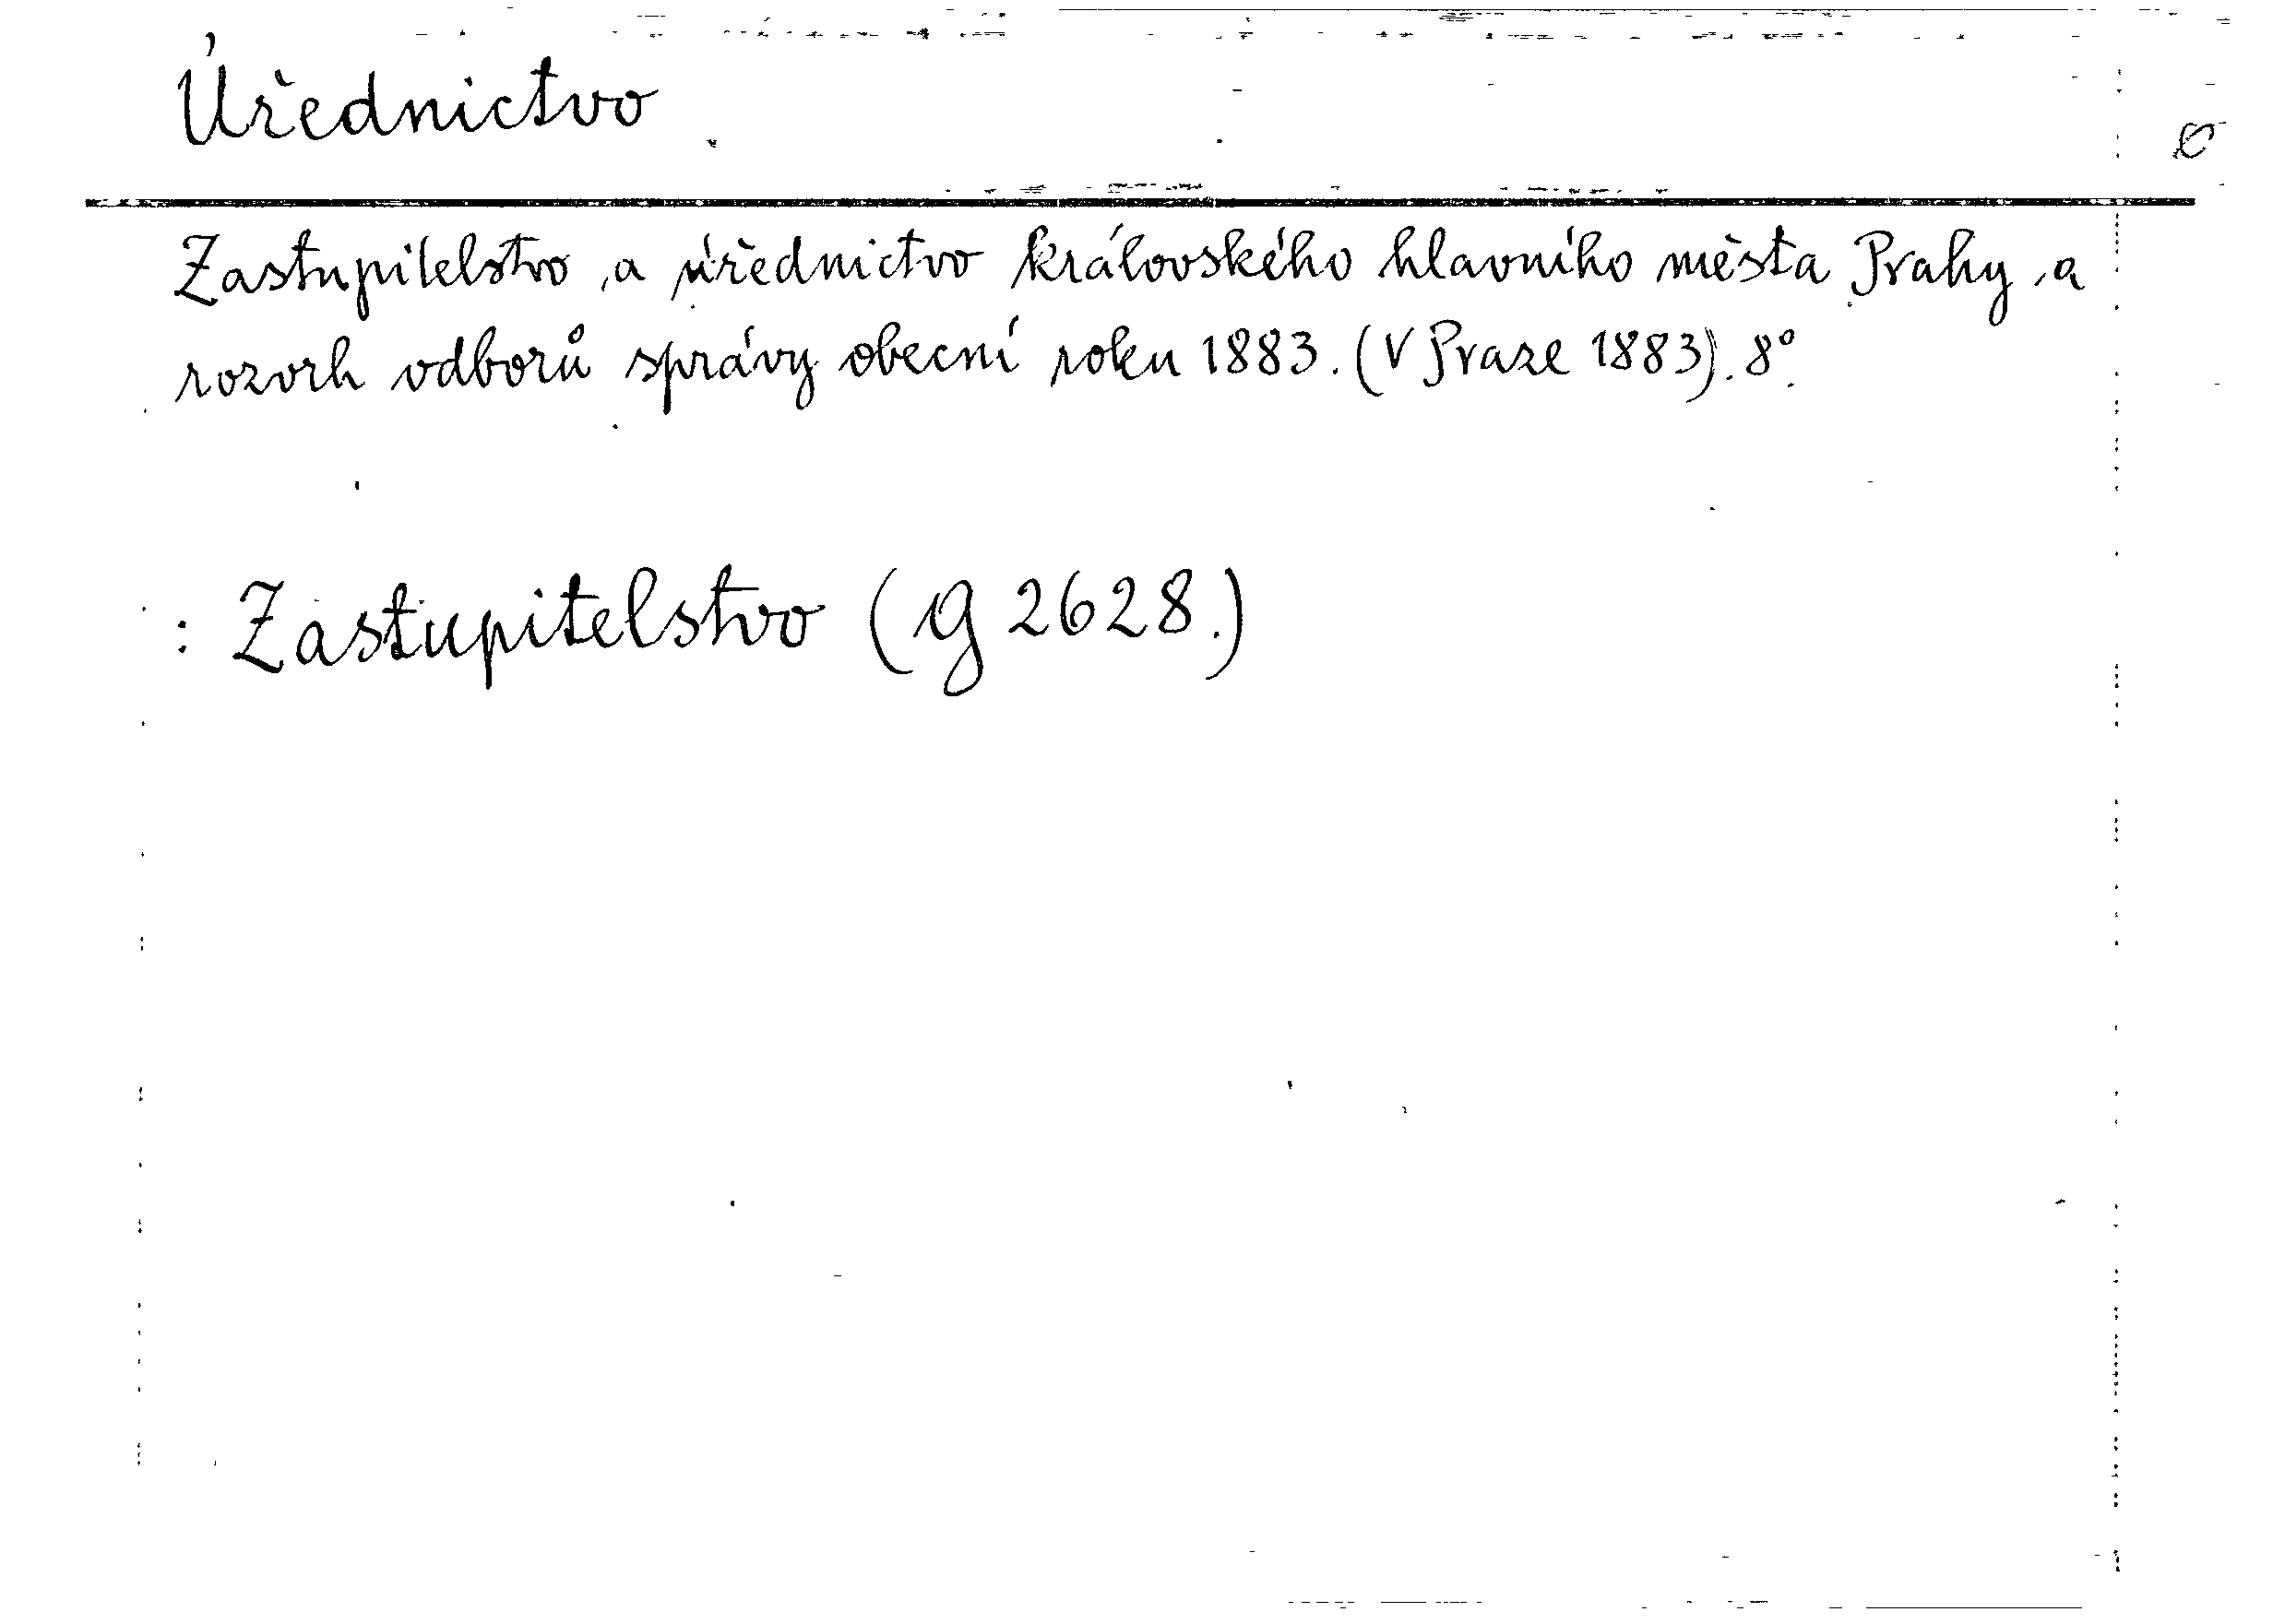 Úřednictvo
Zastupitelstvo a úřednictvo královského hlavního města Prahy a
rozvrh odborů správy obecní roku 1883. (V Praze 1883). 8°.
: Zastupitelstvo (g 2628.)